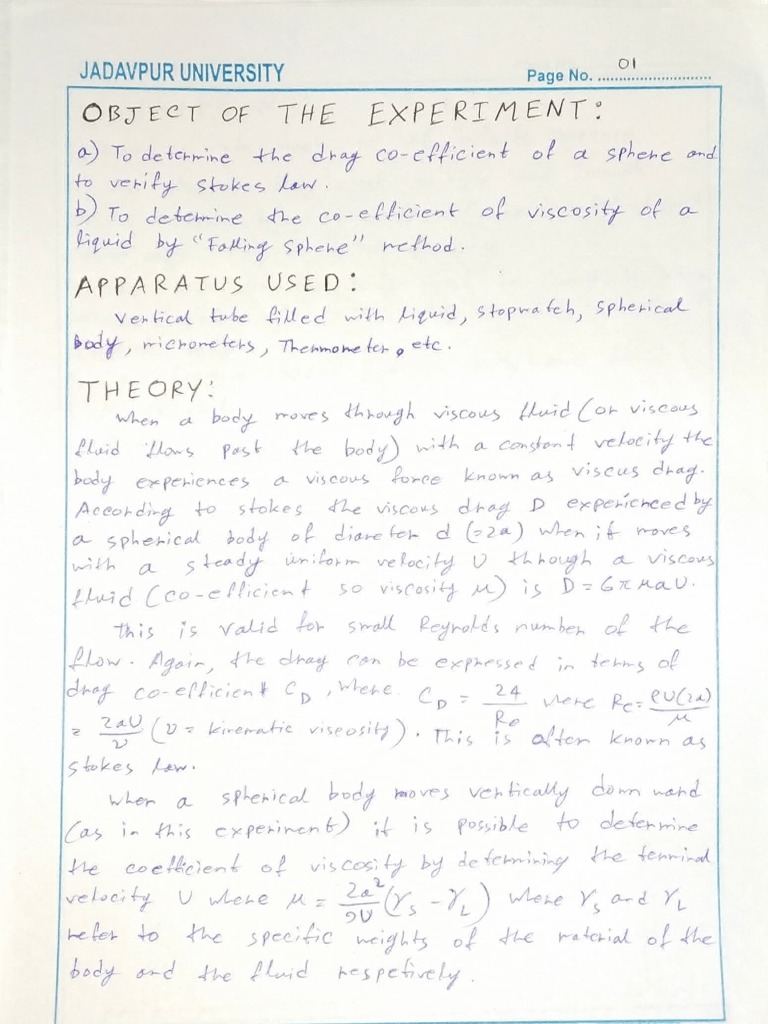 JADAVPUR UNIVERSITY
Page No. 01
OBJECT OF THE EXPERIMENT:
a) To determine the drag co-efficient of a sphere and
to verify stokes law.
b) To determine the co-efficient of viscosity of a
liquid by "Falling Sphere" method.
APPARATUS USED:
Vertical tube filled with liquid, stopwatch, spherical
body, micrometers, Thermometer, etc.
THEORY:
When a body moves through viscous fluid (or viscous
fluid flows past the body) with a constant velocity the
body experiences a viscous force known as viscus drag.
According to stokes the viscous drag D experienced by
a spherical body of diameter d (=2a) when it moves
with a steady uniform velocity U through a viscous
fluid (co-efficient so viscosity μ) is D = 6πμaU.
This is valid for small Reynolds number of the
flow. Again, the drag can be expressed in terms of
drag co-efficient C_D, where C_D = 24/Re where Re = ρU(2a)/μ
= 2aU/ν (ν = kinematic viscosity). This is often known as
stokes law.
When a spherical body moves vertically down ward
(as in this experiment) it is possible to determine
the coefficient of viscosity by determining the terminal
velocity U where μ = 2a²/9U (γs - γL) where γs and γL
refer to the specific weights of the material of the
body and the fluid respetively.